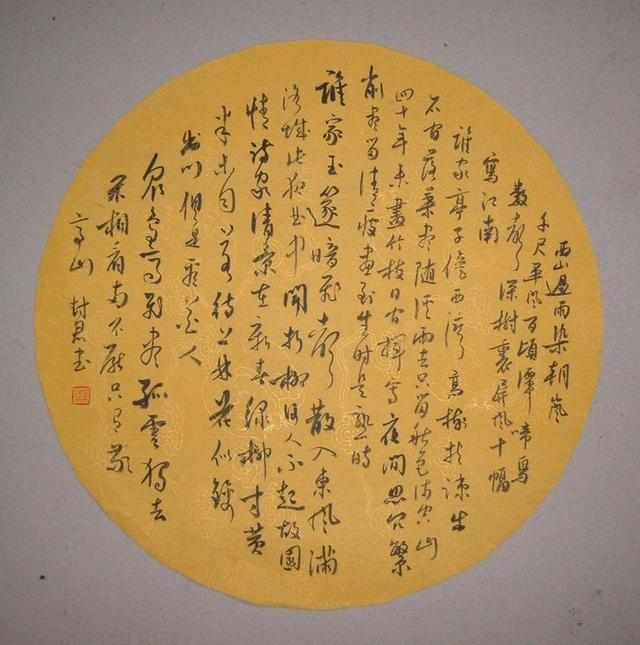 西山過雨染朝嵐
千尺平岡百頃潭啼鳥
數聲深樹裏屏風十幅
寫江南
誰家亭子傍西灣高樹扶疎出
石間落葉盡隨溪雨去只留秋色滿空山
四十年來畫竹枝日間揮寫夜間思冗繁
削盡留清瘦畫到生時是熟時
誰家玉篴暗飛聲散入東風滿
洛城此夜曲中聞折柳何人不起故園
情詩家清景在新春綠柳才黃
半未勻若待上林花似錦
出門俱是看花人
衆鳥高飛盡孤雲獨去
閑相看兩不厭只有敬
亭山 書